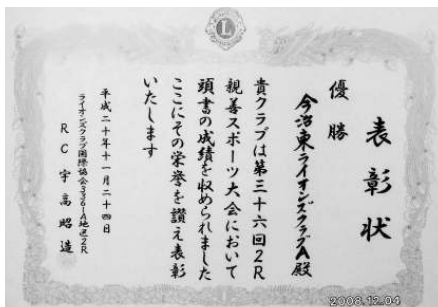 表彰状
優勝
今治東ライオンズクラブA殿
貴クラブは第三十六回2R
親善スポーツ大会において
頭書の成績を収められました
ここにその栄誉を讃え表彰
いたします
平成二十年十一月二十四日
ライオンズクラブ国際協会336-A地区2R
RC 宇高昭造
L
2008.12.04